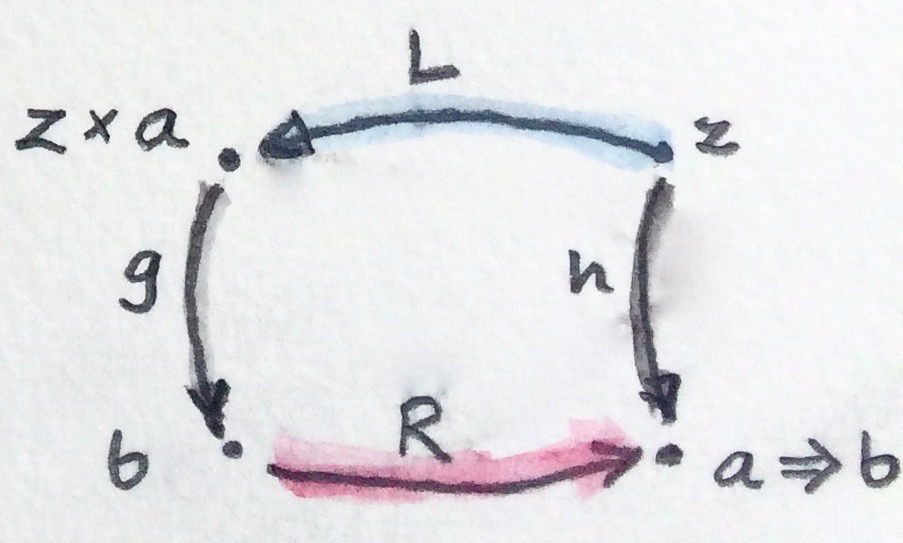 L
z × a
z
g
h
R
b
a ⇒ b